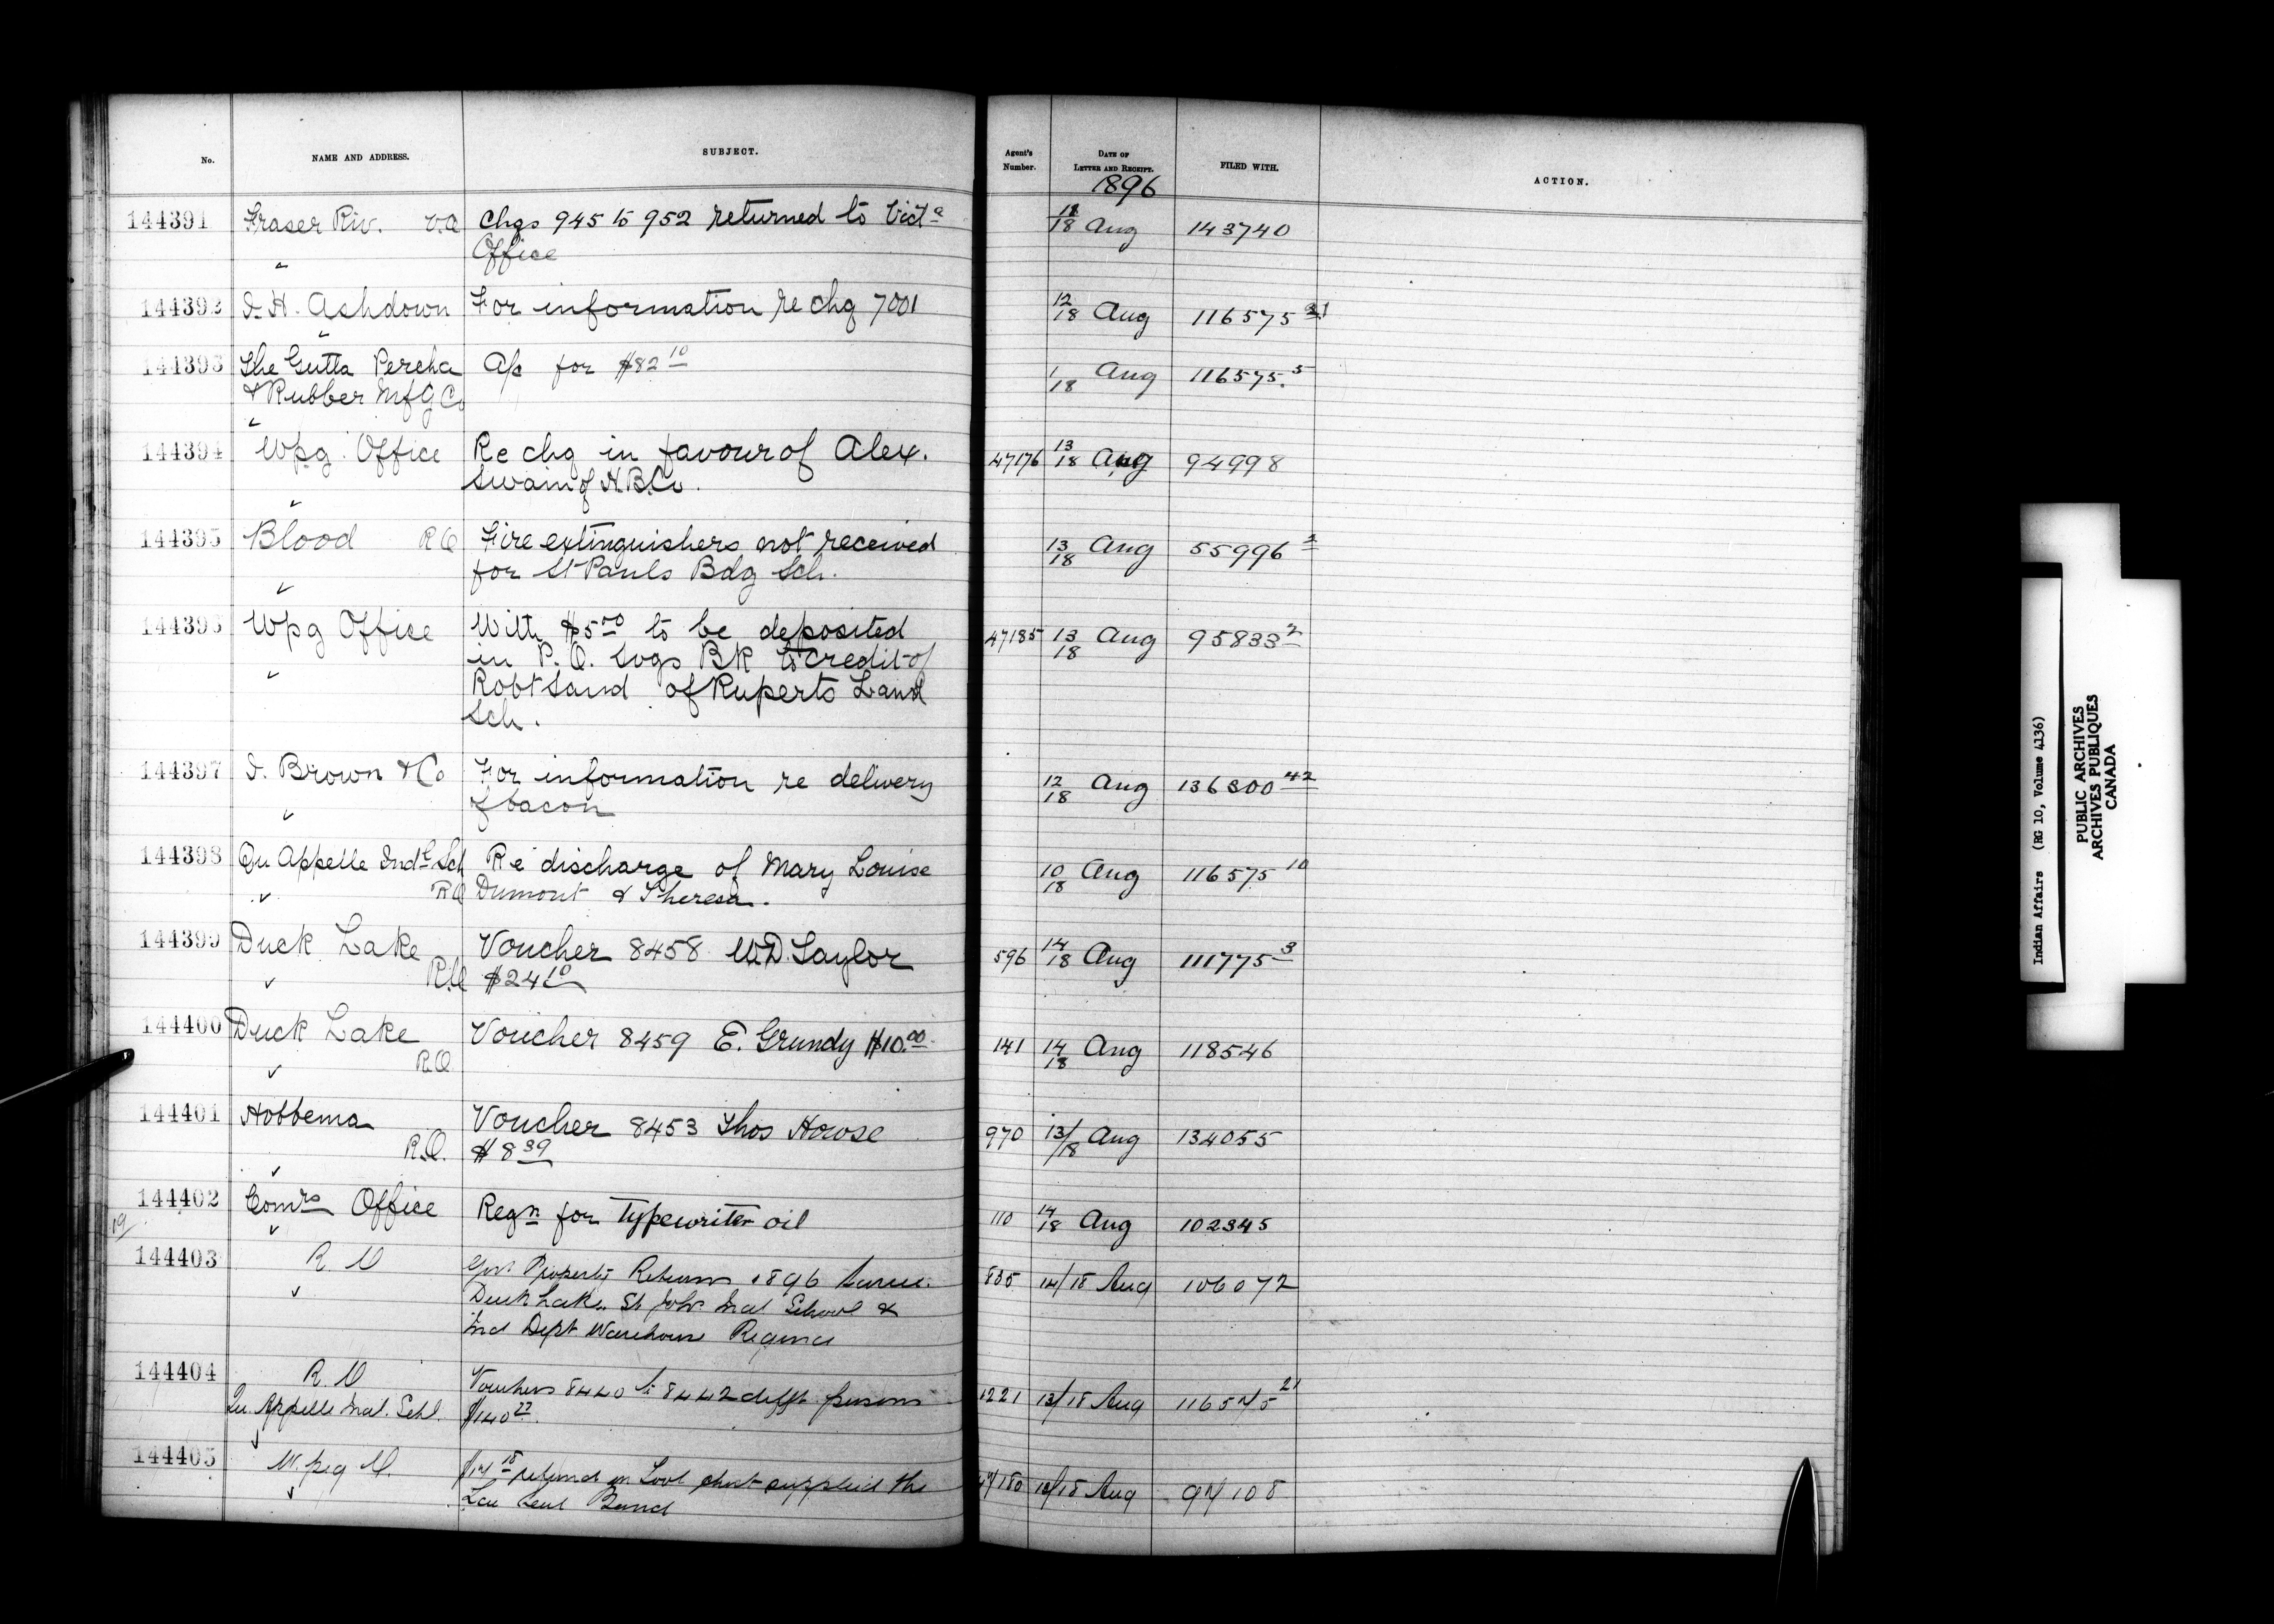 No. NAME AND ADDRESS. SUBJECT. Agent's Number. DATE OF LETTER AND RECEIPT. FILED WITH. ACTION.
1896
144391 Fraser Riv. V.O Chgs 945 to 952 returned to Vict a 18/18 Aug 143740
Office
144392 J.H. Ashdown For information re chg 7001 12/18 Aug 116575 21
144393 The Gutta Percha A/c for $82 10 1/18 Aug 116575. 5
& Rubber Mfg Co
144394 Wpg Office Re chg in favour of Alex. 47176 13/18 Aug 94998
Swain of H.B.Co.
144395 Blood R O Fire extinguishers not received 13/18 Aug 55996 2
for St Pauls Bdg Sch.
144396 Wpg Office With $5 00 to be deposited 47185 13/18 Aug 95833 2
in P.O. Svgs BK to credit of
Robt Sand of Ruperts Land
Sch.
144397 J. Brown & Co For information re delivery 12/18 Aug 136300 42
of bacon
144398 Qu Appelle Indl Sch Re discharge of Mary Louise 10/18 Aug 116575 10
R O Dumont & Theresa.
144399 Duck Lake Voucher 8458 W.D. Taylor 596 14/18 Aug 111775 3
R.O $24 10
144400 Duck Lake Voucher 8459 E. Grundy $10.00 141 14/18 Aug 118546
R.O
144401 Hobbema Voucher 8453 Thos Howse 970 13/18 Aug 134055
R.O. $8 39
144402 Comrs Office Reqn for typewriter oil 110 14/18 Aug 102345
19/
144403 R. O Govt Property Returns 1896 835 14/18 Aug 106072
Duck Lake, St Johns Ind School &
Ind Dept Warehouse Regina
144404 R. O Vouchers 8440 to 8442 difft persons 1221 13/18 Aug 116575 21
Qu. Appelle Ind. Schl. $140 22
144405 W.peg O. $17 18 refund on Tool chest supplied the 47180 13/18 Aug 97108
Lac Seul Band
Indian Affairs (RG 10, Volume 4136)
PUBLIC ARCHIVES
ARCHIVES PUBLIQUES
CANADA